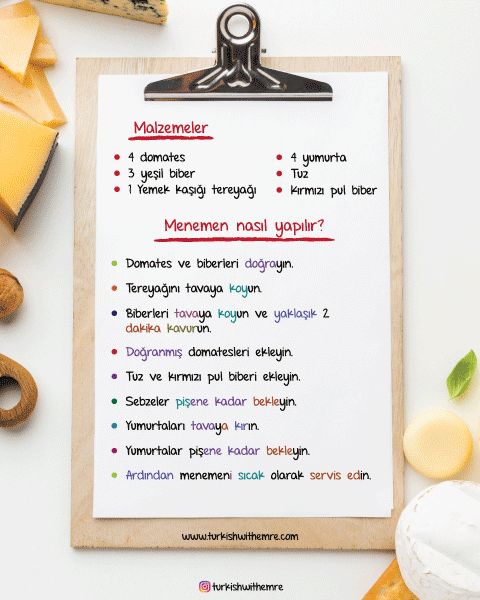 Malzemeler
4 domates
3 yeşil biber
1 Yemek kaşığı tereyağı
4 yumurta
Tuz
Kırmızı pul biber
Menemen nasıl yapılır?
Domates ve biberleri doğrayın.
Tereyağını tavaya koyun.
Biberleri tavaya koyun ve yaklaşık 2
dakika kavurun.
Doğranmış domatesleri ekleyin.
Tuz ve kırmızı pul biberi ekleyin.
Sebzeler pişene kadar bekleyin.
Yumurtaları tavaya kırın.
Yumurtalar pişene kadar bekleyin.
Ardından menemeni sıcak olarak servis edin.
www.turkishwithemre.com
turkishwithemre